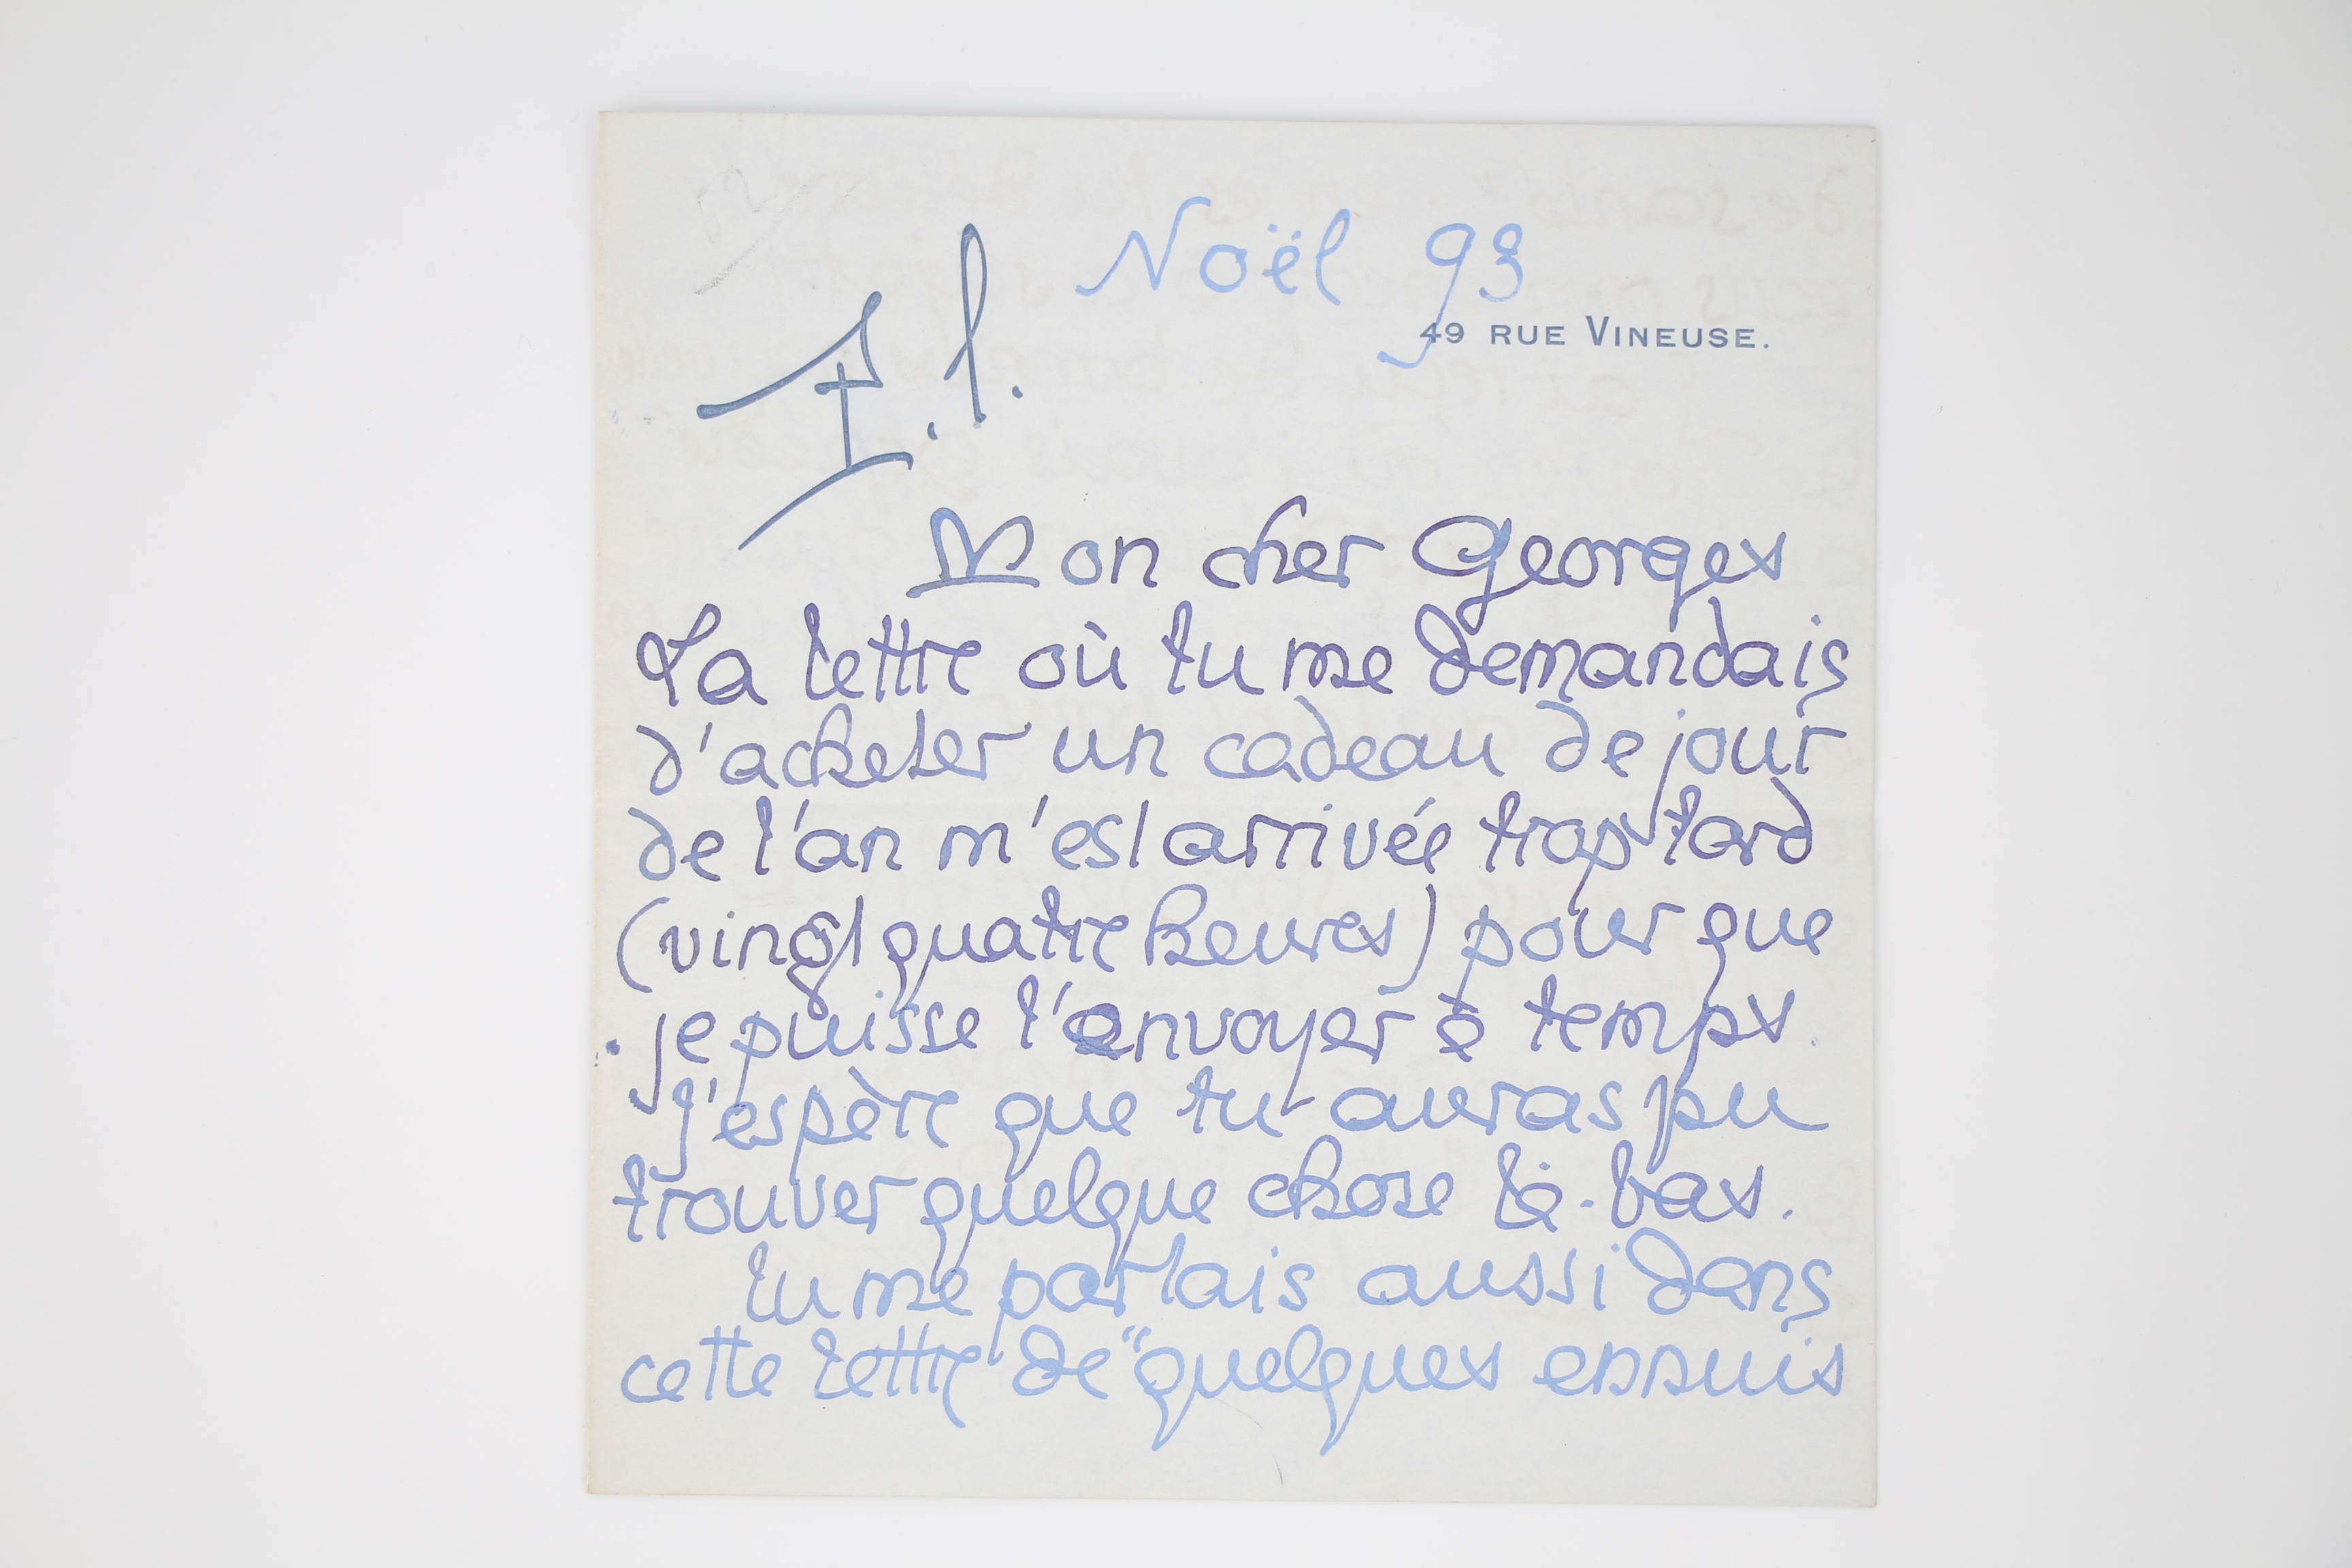 Noël 93
49 RUE VINEUSE.
Mon cher Georges
La lettre où tu me demandais
d'acheter un cadeau de jour
de l'an m'est arrivée trop tard
(vingt quatre heures) pour que
je puisse l'envoyer à temps.
j'espère que tu auras pu
trouver quelque chose là-bas.
tu me parlais aussi dans
cette lettre de "quelques ennuis